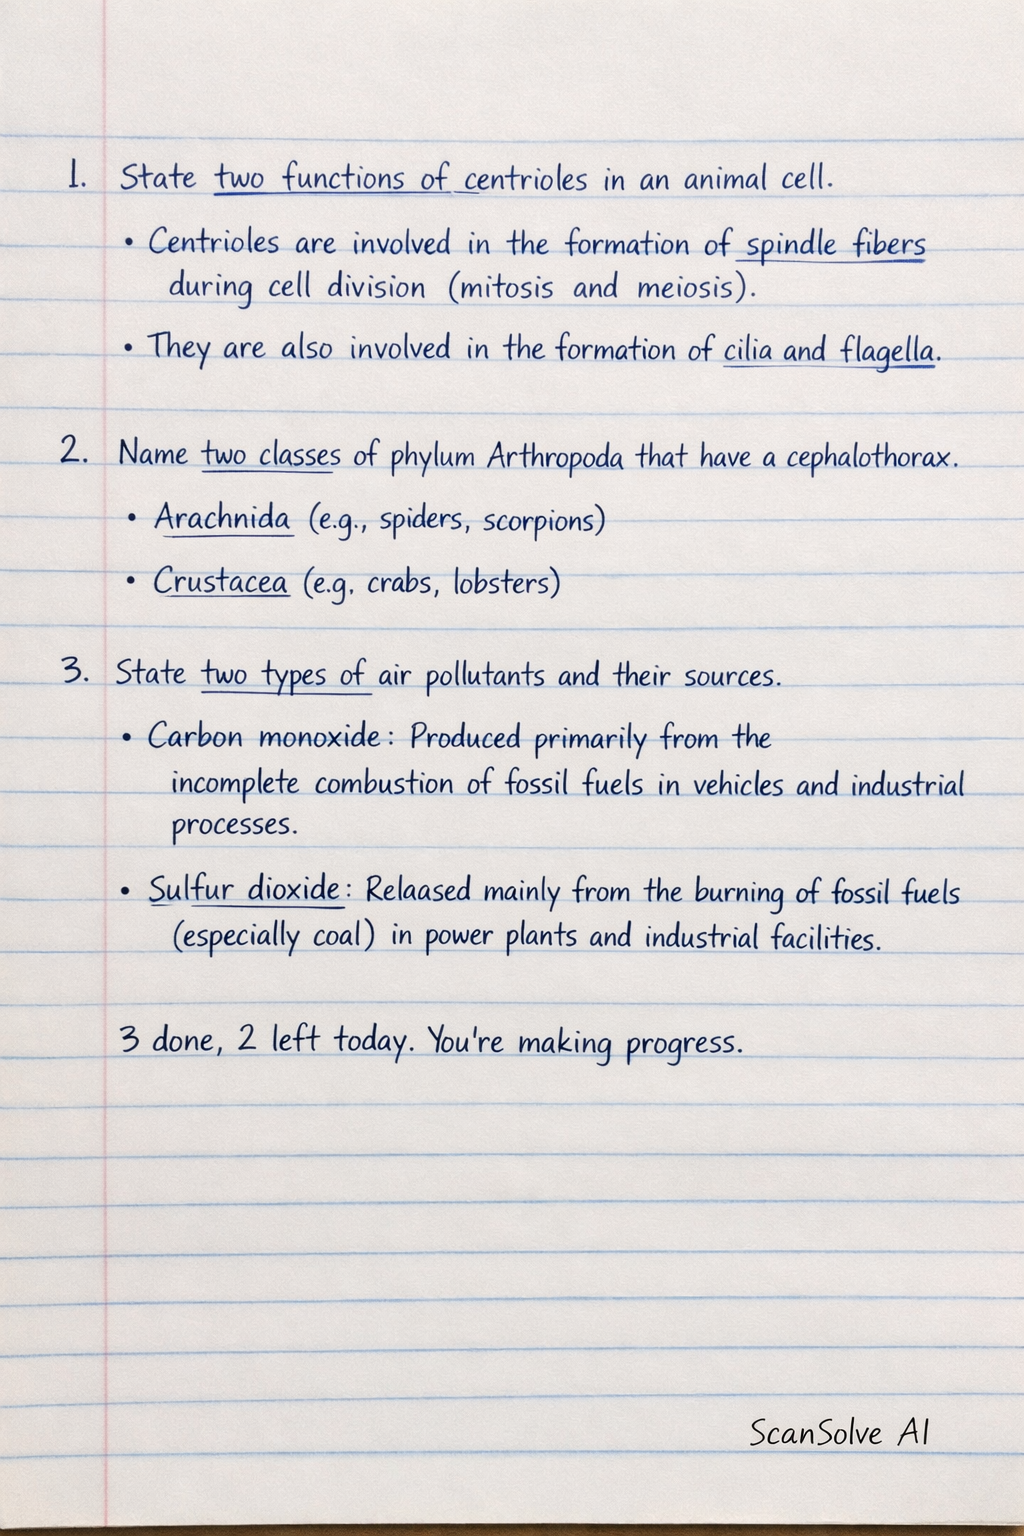 1. State two functions of centrioles in an animal cell.
• Centrioles are involved in the formation of spindle fibers
during cell division (mitosis and meiosis).
• They are also involved in the formation of cilia and flagella.
2. Name two classes of phylum Arthropoda that have a cephalothorax.
• Arachnida (e.g., spiders, scorpions)
• Crustacea (e.g. crabs, lobsters)
3. State two types of air pollutants and their sources.
• Carbon monoxide: Produced primarily from the
incomplete combustion of fossil fuels in vehicles and industrial
processes.
• Sulfur dioxide: Relaased mainly from the burning of fossil fuels
(especially coal) in power plants and industrial facilities.
3 done, 2 left today. You're making progress.
ScanSolve AI